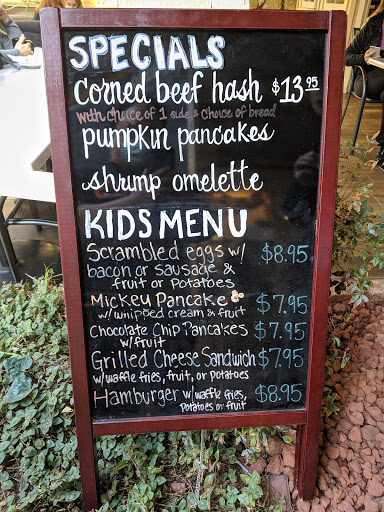 SPECIALS
corned beef hash $13.95
with choice of 1 side & choice of bread
pumpkin pancakes
shrimp omelette
KIDS MENU
Scrambled eggs w/ $8.95
bacon or sausage &
fruit or potatoes
Mickey Pancake $7.95
w/whipped cream & fruit
Chocolate Chip Pancakes $7.95
w/fruit
Grilled Cheese Sandwich $7.95
w/waffle fries, fruit, or potatoes
Hamburger w/waffle fries, $8.95
Potatoes or fruit